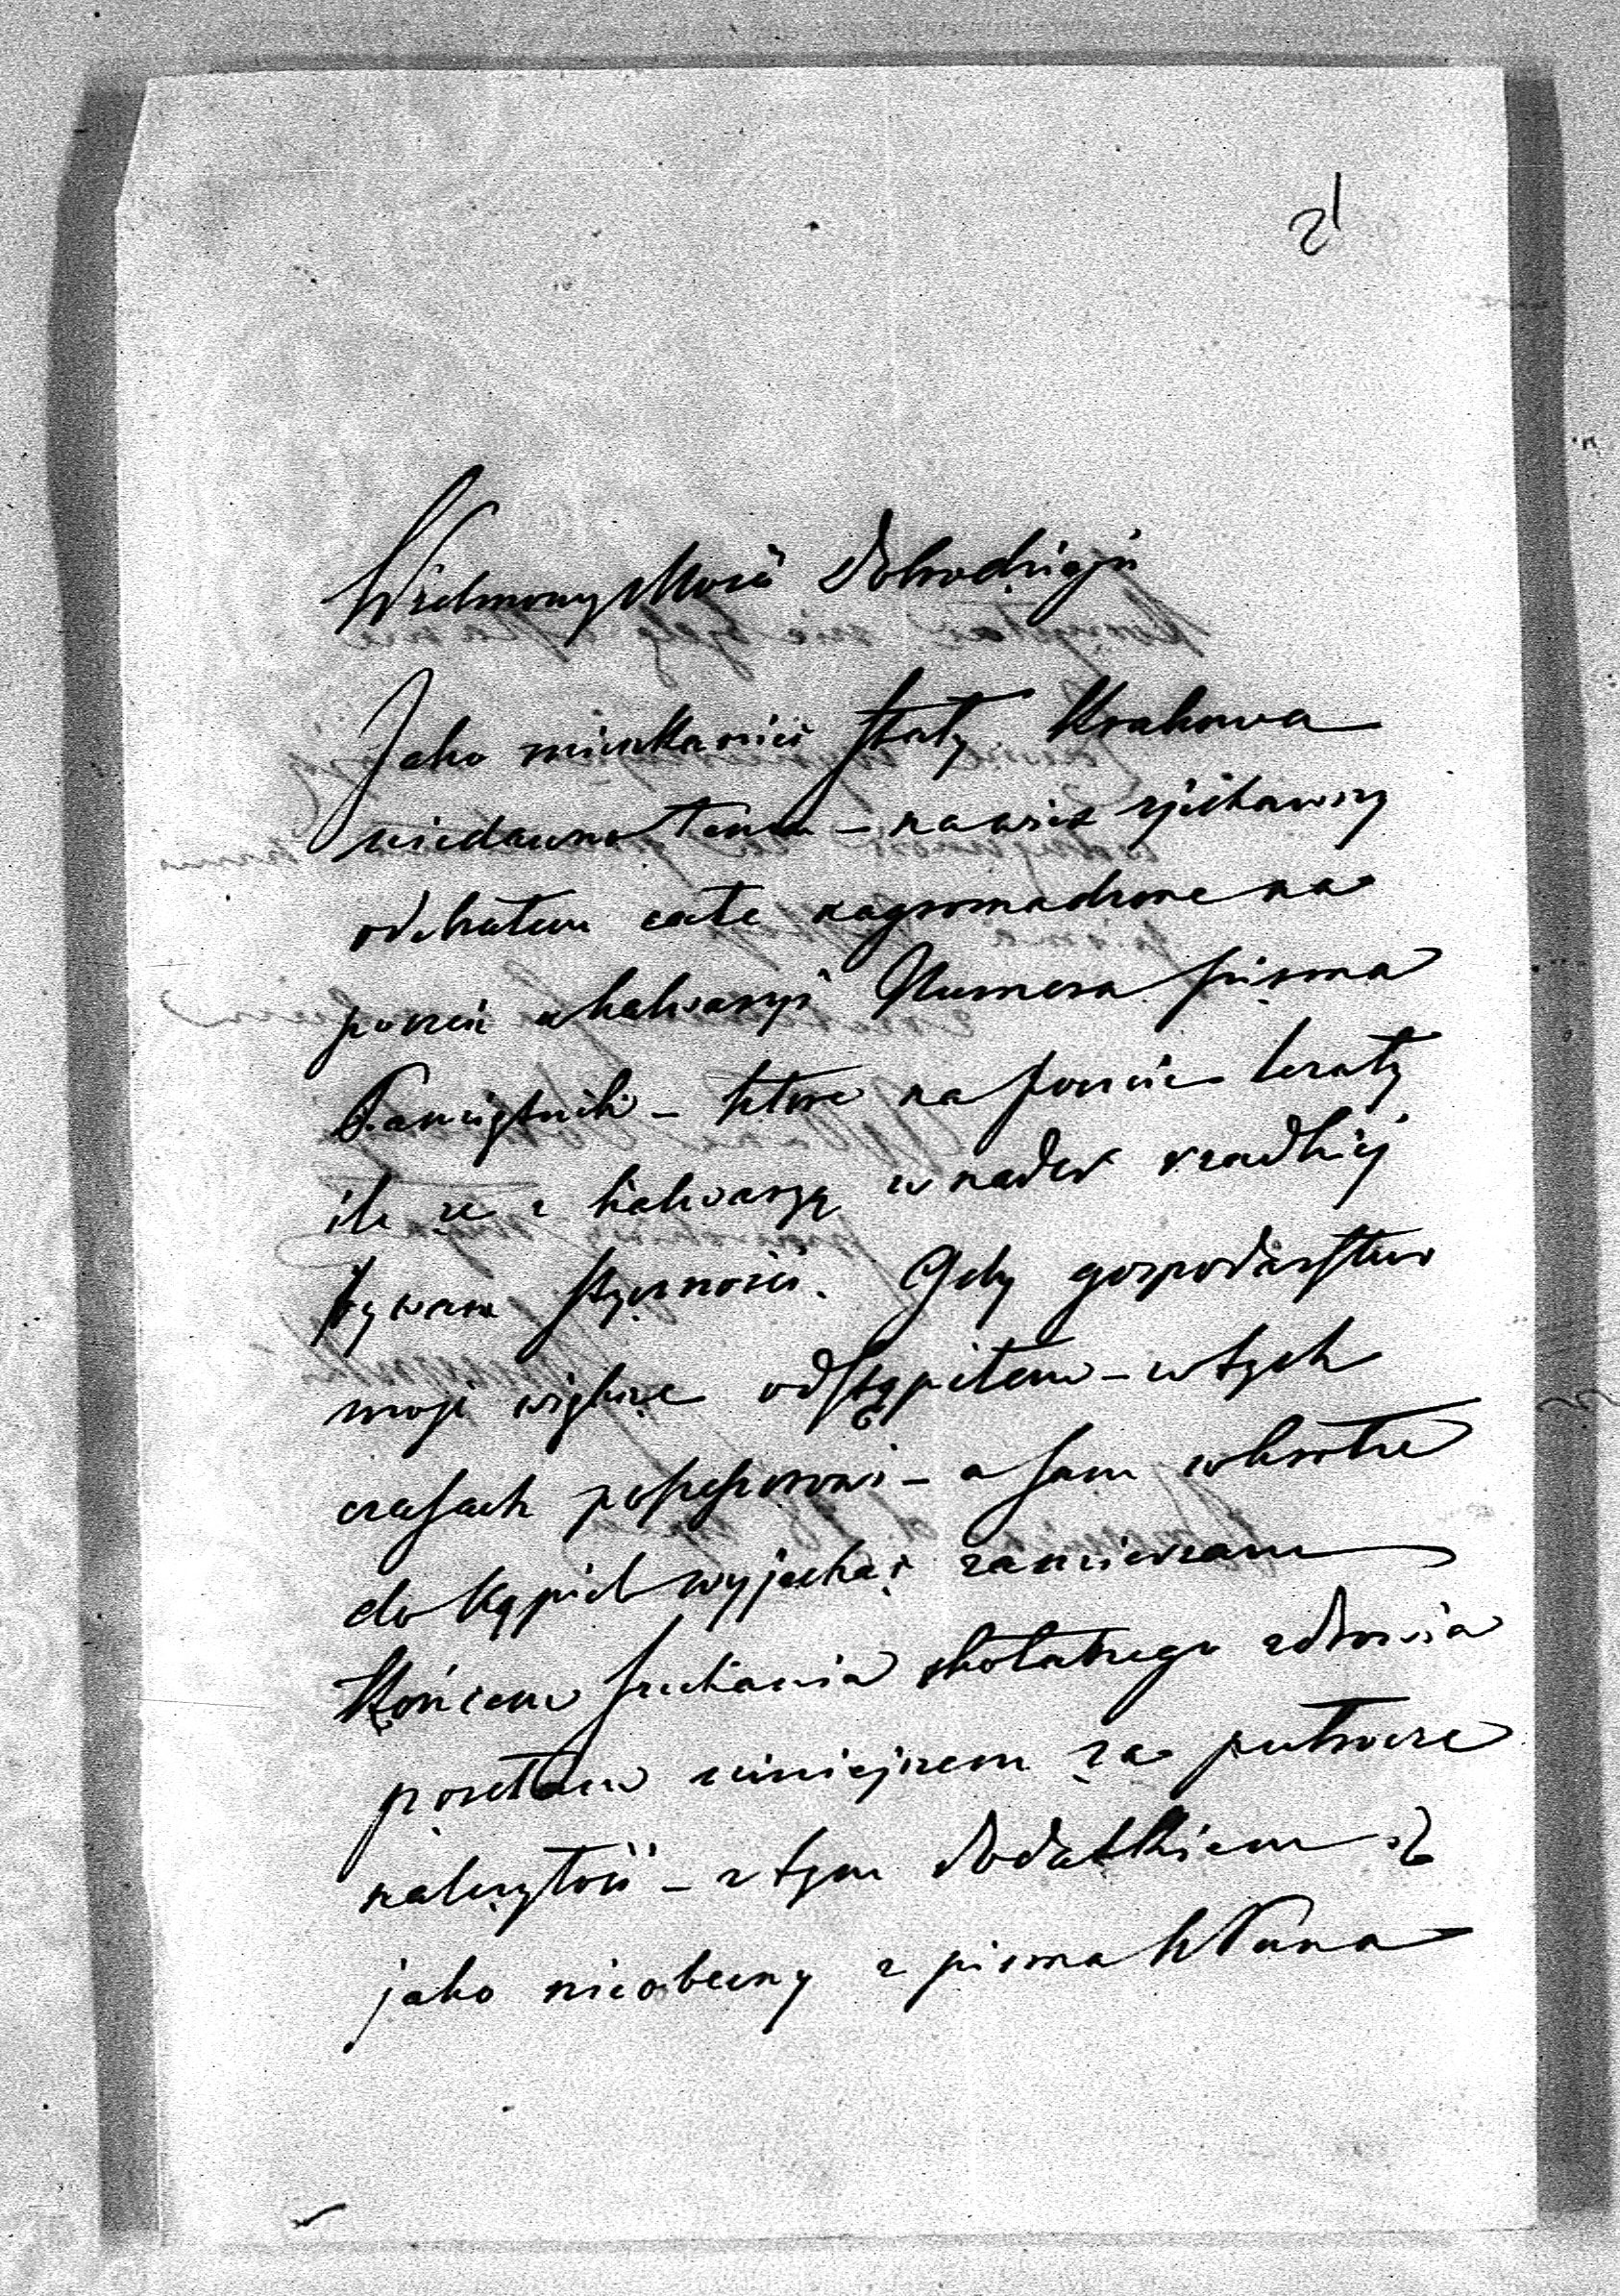 21
Wielmożny Mości Dobrodzieju
Jako mieszkaniec stały Krakowa
niedawno temu – na wieś zjechawszy
odebrałem całe nagromadzone na
poczcie w Kalwaryi Numera pisma
Pamiętnik – które na poczcie leżały
ile że z Kalwaryą w nader rzadkiej
bywam styczności. Gdy gospodarstwo
moje wiejskie odstąpiłem – w tych
czasach possessorowi – a sam wkrótce
do kąpiel wyjechać zamierzam
końcem szukania zdrowia
posełam niniejszem za
należytość – z tym dodatkiem iż
jako nieobecny z pisma WPana